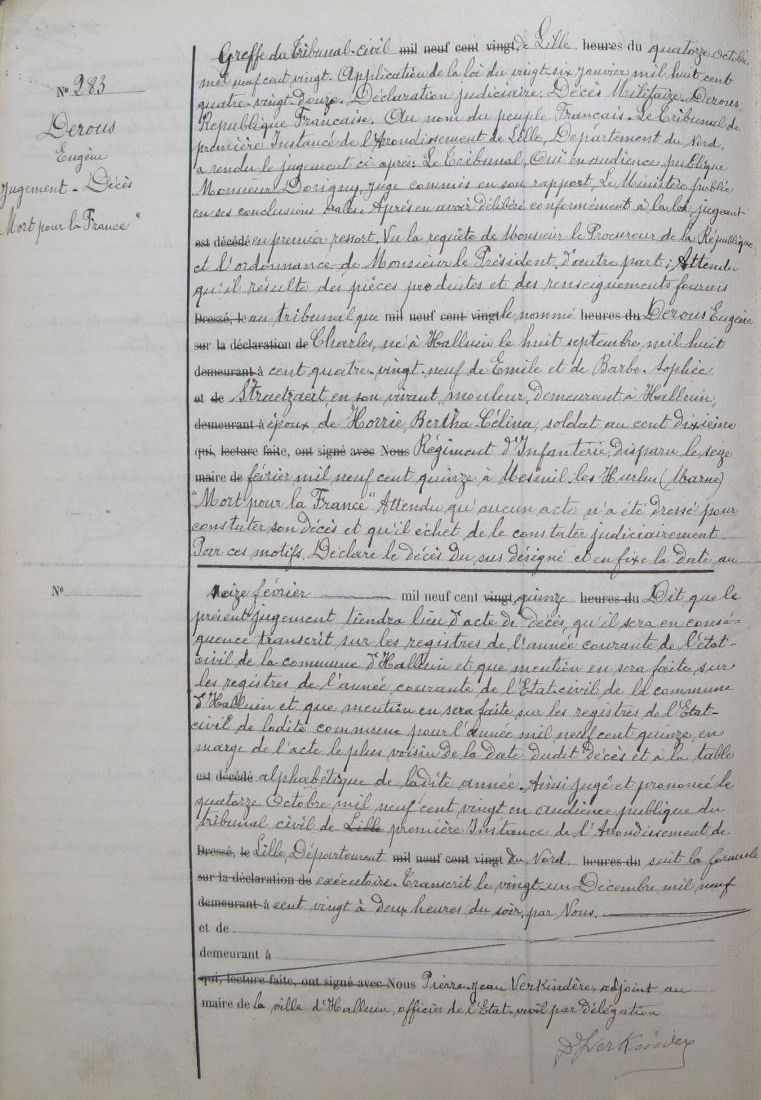 Greffe du Tribunal-civil mil neuf cent vingt, de Lille heures du quatorze Octobre
mil neuf cent vingt. Application de la loi du vingt-six janvier mil huit cent
Nº 283
quatre-vingt-douze. Déclaration judiciaire. Décès Militaire. Derous
République Française. Au nom du peuple Français. Le Tribunal de
Derous
première Instance de l'Arrondissement de Lille, Département du Nord,
Eugène
a rendu le jugement ci après: Le Tribunal, Ouï en audience publique
Jugement - Décès
Monsieur Dorigny, juge commis en son rapport, Le Ministère public
"Mort pour la France"
en ses conclusions Après en avoir délibéré conformément à la loi, jugeant
est décédé en premier ressort. Vu la requête de Monsieur le Procureur de la République
et l'ordonnance de Monsieur le Président d'autre part; Attendu
qu'il résulte des pièces produites et des renseignements fournis
Dressé, le au tribunal que mil neuf cent vingt le nommé heures du Derous Eugène
sur la déclaration de Charles, né à Halluin le huit septembre mil huit
demeurant à cent quatre-vingt-neuf de Emile et de Barbe-Sophie
et de Straetzaert, en son vivant mouleur, demeurant à Halluin,
demeurant à époux de Horrie, Bertha Célina, soldat au cent dixième
qui, lecture faite, ont signé avec Nous Régiment d'Infanterie, disparu le seize
maire de février mil neuf cent quinze, à Mesnil les Hurlus (Marne)
"Mort pour la France" Attendu qu'aucun acte n'a été dressé pour
constater son décès et qu'il échet de le constater judiciairement.
Par ces motifs. Déclare le décès du sus désigné et en fixe la date au
Nº
seize février mil neuf cent vingt, quinze heures du Dit que le
présent jugement tiendra lieu d'acte de décès, qu'il sera en consé-
quence transcrit sur les registres de l'année courante de l'état-
civil de la commune d'Halluin et que mention en sera faite sur
les registres de l'année courante de l'Etat-civil de la commune
d'Halluin et que mention en sera faite sur les registres de l'Etat-
civil de ladite commune pour l'année mil neuf cent quinze, en
marge de l'acte le plus voisin de la date dudit décès et à la table
est décédé alphabétique de ladite année. Ainsi jugé et prononcé le
quatorze Octobre mil neuf cent vingt en audience publique du
tribunal civil de Lille première Instance de l'Arrondissement de
Dressé, le Lille, Département mil neuf cent vingt du Nord heures du suit la formule
sur la déclaration de exécutoire. Transcrit le vingt-un Décembre mil neuf
demeurant à cent vingt à deux heures du soir, par Nous.
et de
demeurant à
qui, lecture faite, ont signé avec Nous Pierre-Jean Verkindère, adjoint au
maire de la ville d'Halluin, officier de l'Etat-civil par délégation